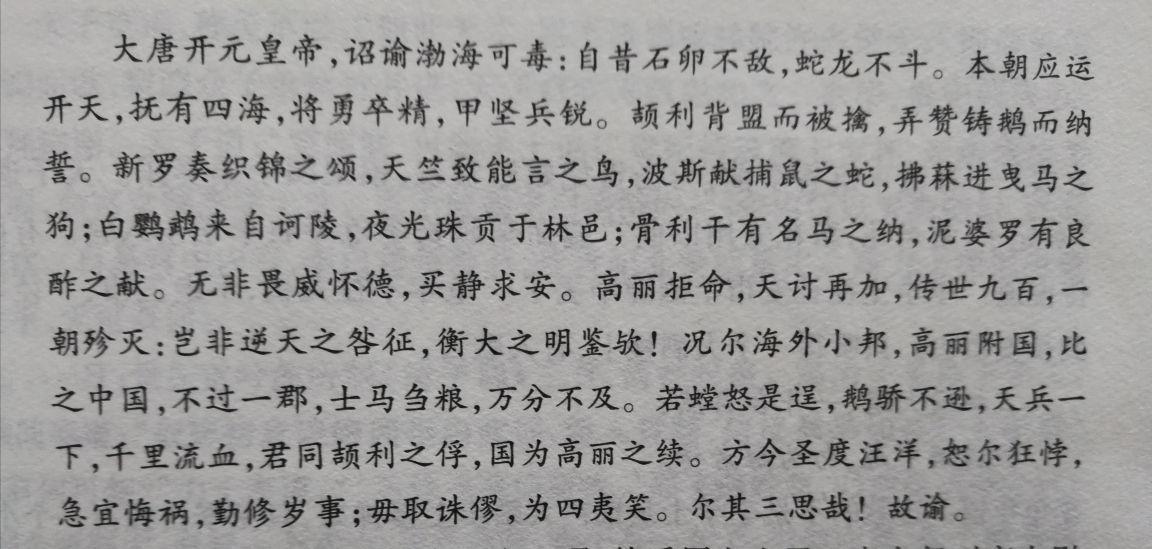 大唐开元皇帝,诏谕渤海可毒:自昔石卵不敌,蛇龙不斗。本朝应运
开天,抚有四海,将勇卒精,甲坚兵锐。颉利背盟而被擒,弄赞铸鹅而纳
誓。新罗奏织锦之颂,天竺致能言之鸟,波斯献捕鼠之蛇,拂菻进曳马之
狗;白鹦鹉来自诃陵,夜光珠贡于林邑;骨利干有名马之纳,泥婆罗有良
酢之献。无非畏威怀德,买静求安。高丽拒命,天讨再加,传世九百,一
朝殄灭:岂非逆天之咎征,衡大之明鉴欤!况尔海外小邦,高丽附国,比
之中国,不过一郡,士马刍粮,万分不及。若螳怒是逞,鹅骄不逊,天兵一
下,千里流血,君同颉利之俘,国为高丽之续。方今圣度汪洋,恕尔狂悖,
急宜悔祸,勤修岁事;毋取诛僇,为四夷笑。尔其三思哉!故谕。